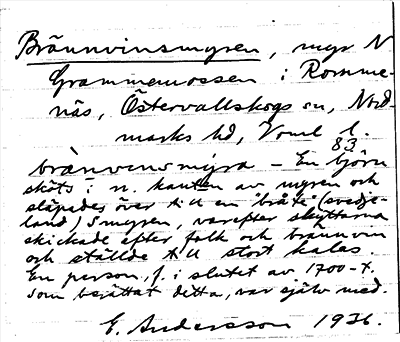 Brännvinsmyren, myr N
Grammemossen i Romme-
näs, Östervallskogs sn, Nord-
marks hd, Vrml l.
83
brännvensmýra – En björn
sköts i n. kanten av myren och
släpades över till en "bråte" (svedje-
land) S myren, varefter skyttarna
skickade efter folk och brännvin
och ställde till stort kalas
En person, f. i slutet av 1700-t.
som berättat detta, var själv med.
E. Andersson 1936.